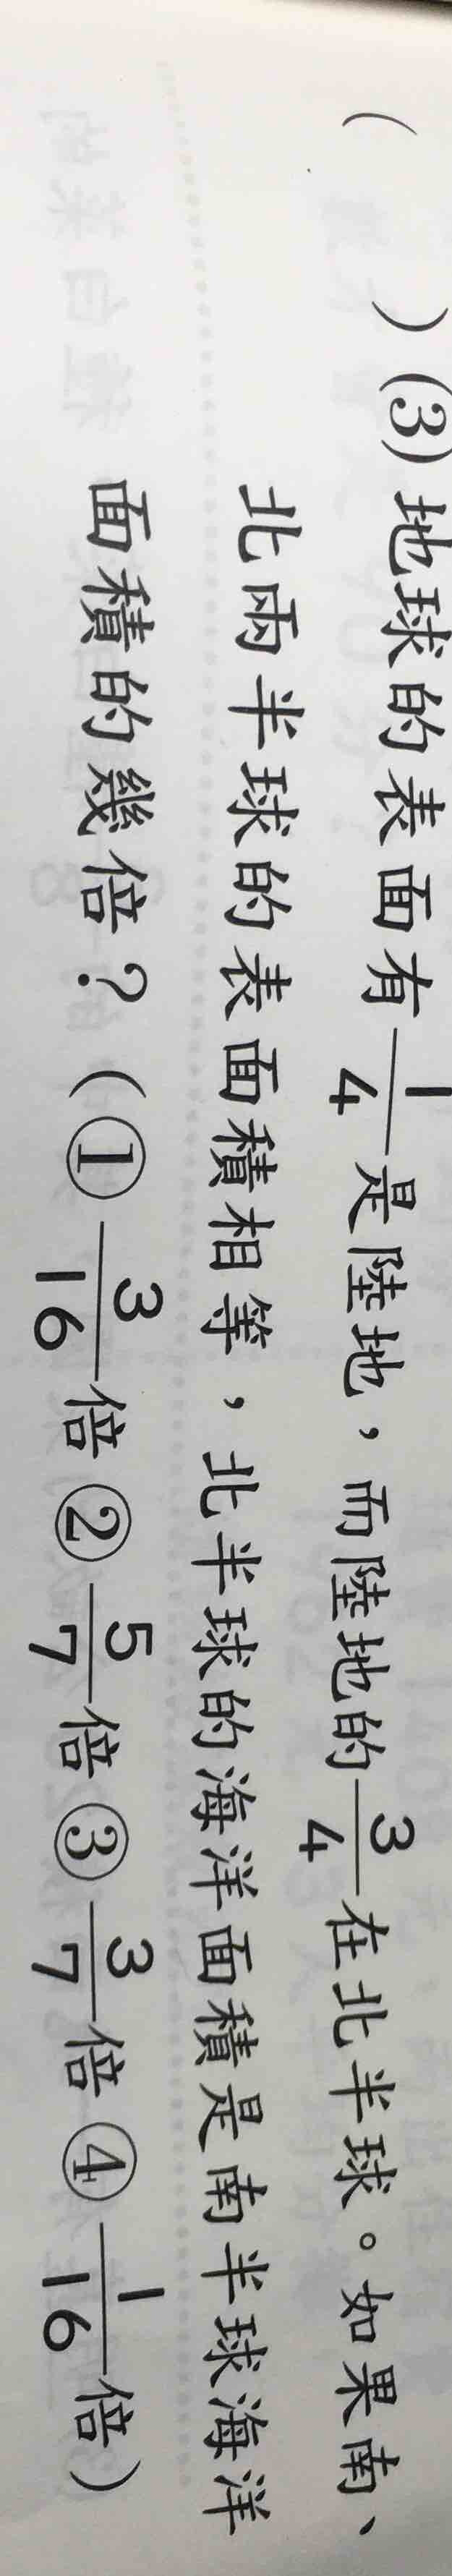 (　　)(3) 地球的表面有1/4是陸地，而陸地的3/4在北半球。如果南、
北兩半球的表面積相等，北半球的海洋面積是南半球海洋
面積的幾倍？(① 3/16倍 ② 5/7倍 ③ 3/7倍 ④ 1/16倍)